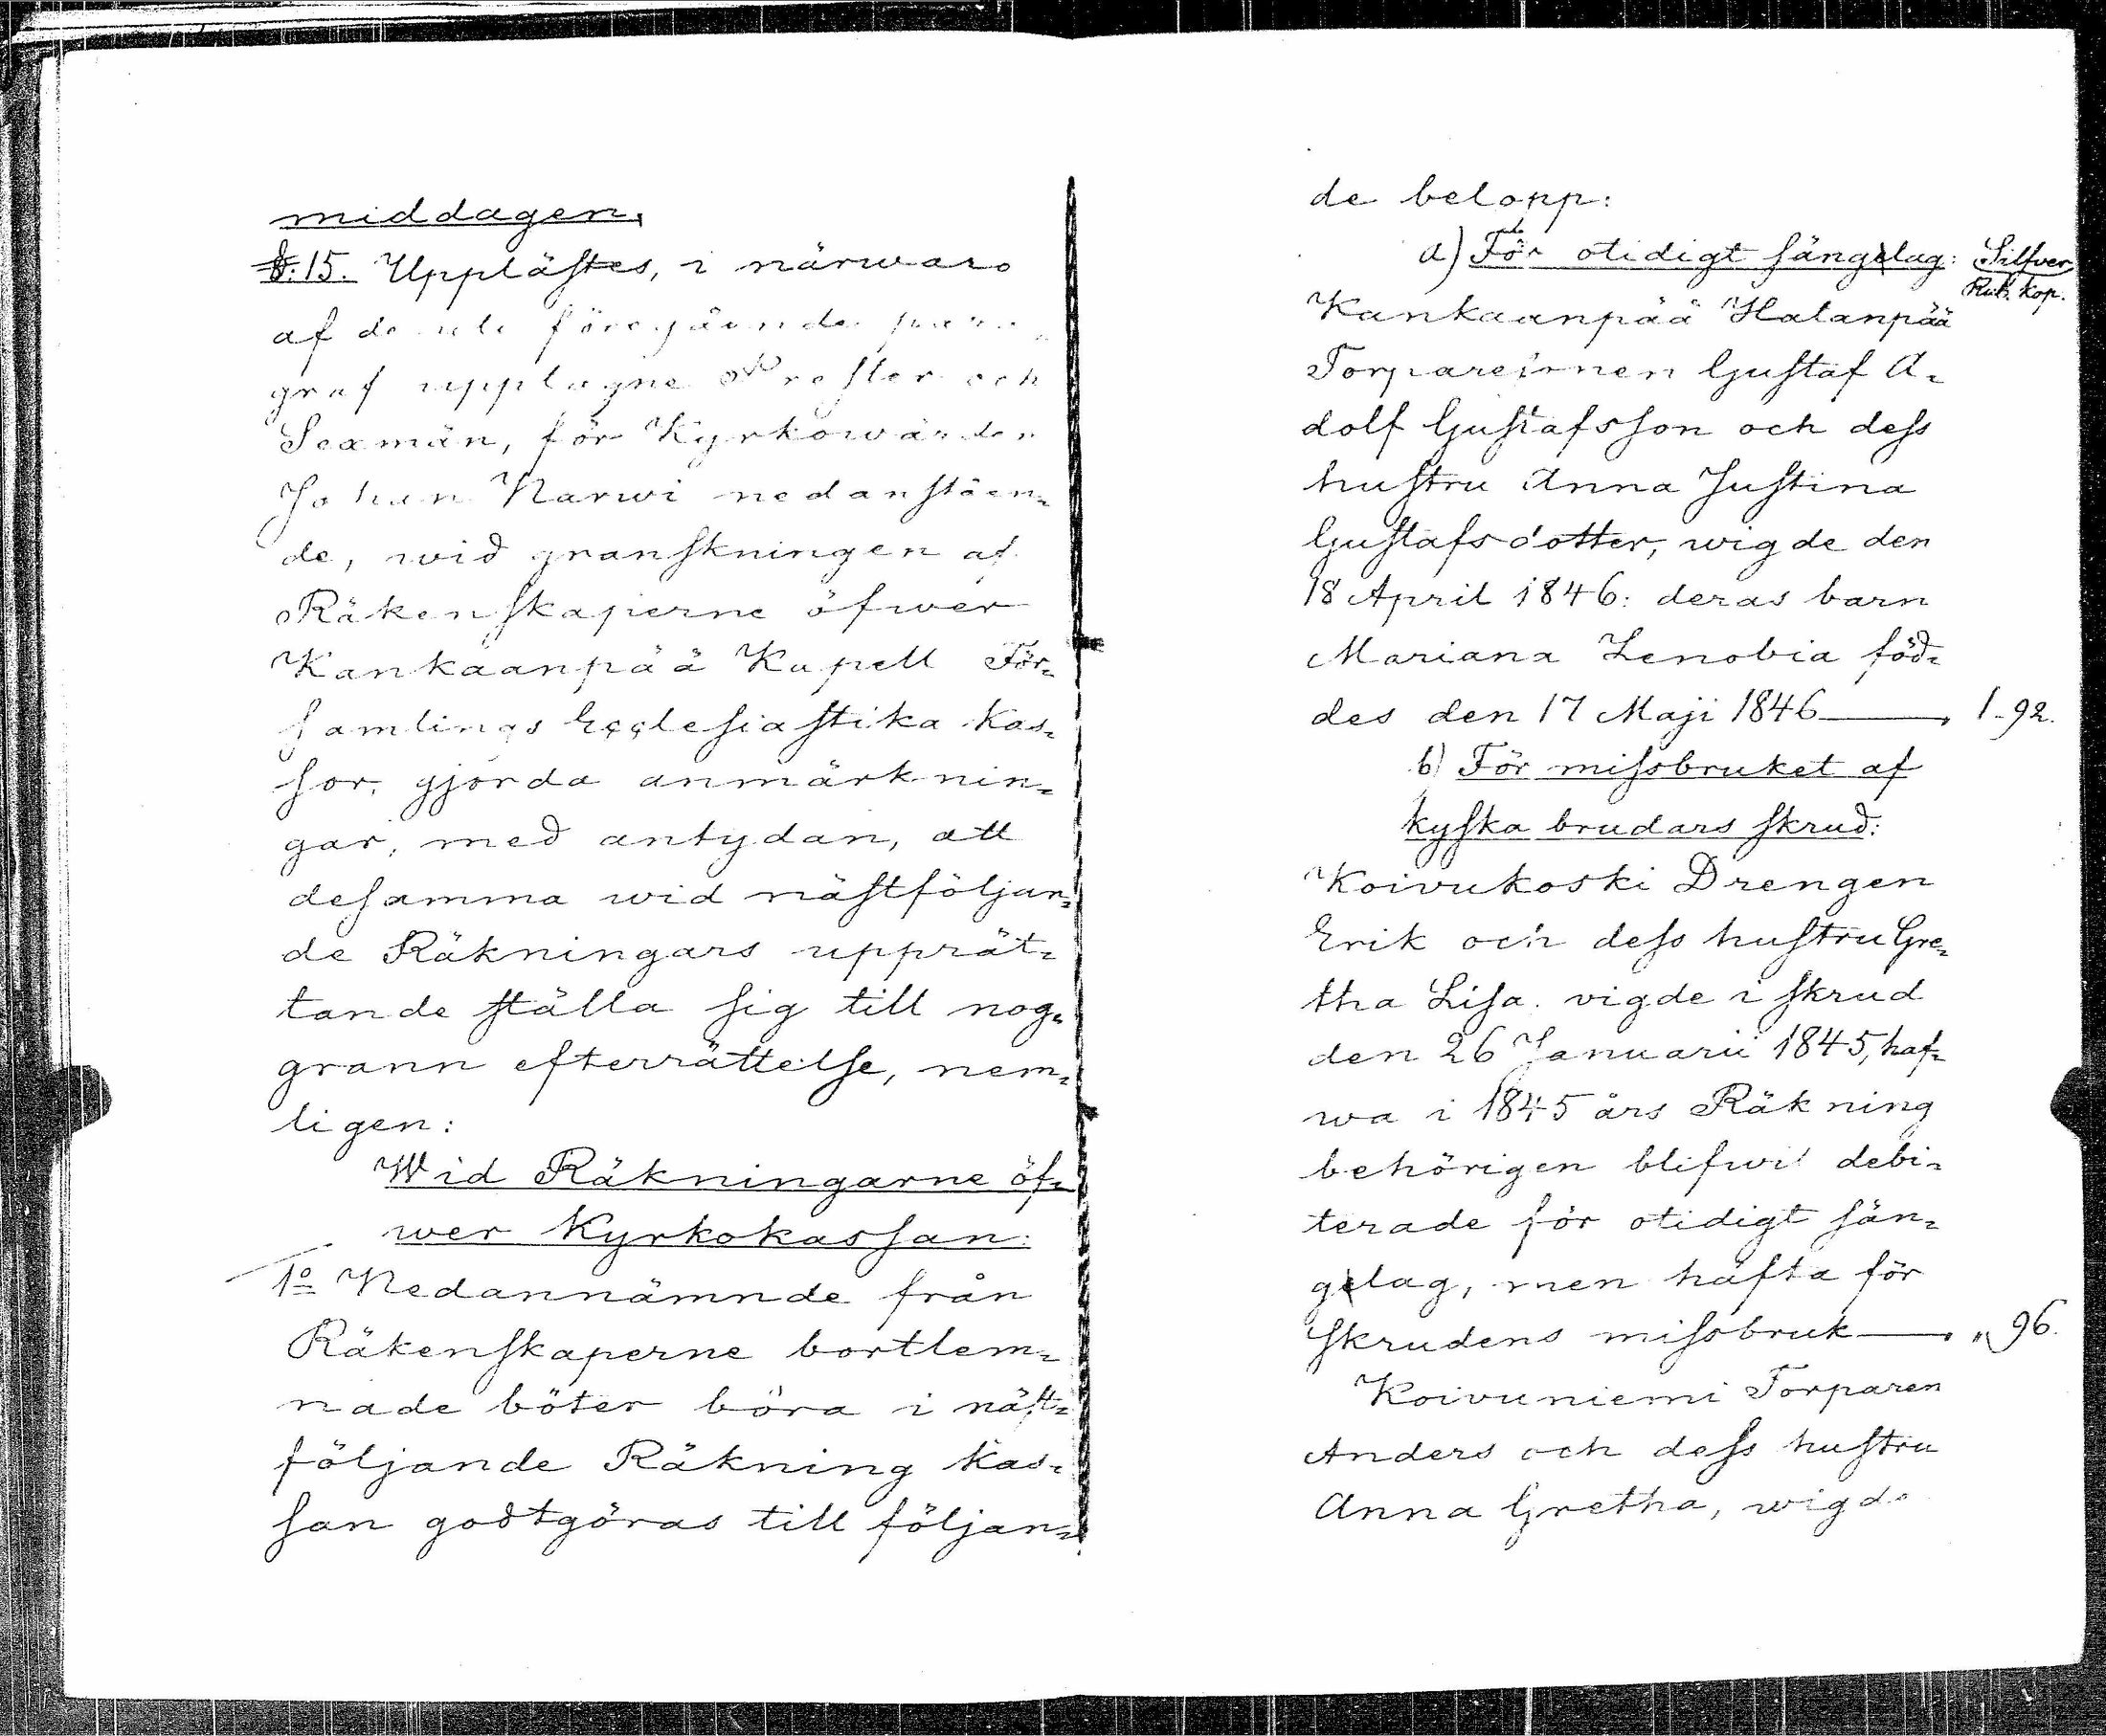 middagen.
§: 15. Upplästes, i närwaro
af de uti föregående para-
graf upptagne Prester och
Sexmän, för Kyrkowärden
Johan Narwi nedanståen-
de, wid granskningen af
Räkenskaperne öfwer
Kankaanpää Kapell För-
samlings Ecclesiastika Kas-
sor, gjorda anmärknin-
gar, med antydan, att
desamma wid nästföljan-
de Räkningars upprät-
tande ställa sig till nog-
grann efterrättelse, nem-
ligen:
Wid Räkningarne öf-
wer Kyrkokassan:
1o Nedannämnde från
Räkenskaperne bortlem-
nade böter böra i näst-
följande Räkning Kas-
san godtgöras till följan-
de belopp:
a) För otidigt sänglag: Silfver
Rub. Kop.
Kankaanpää Hatanpää
Gustaf A-
dolf Gustafsson och dess
hustru Anna Justina
Gustafsdotter, wigde den
18 April 1846: deras barn
Mariana Zenobia föd-
des den 17 Maji 1846 — 1-92.
b) För missbruket af
kyska brudars skrud:
Koivukoski Drengen
Erik och dess hustru Gre-
tha Lisa. vigde i skrud
den 26 Januarii 1845, haf-
wa i 1845 års Räkning
behörigen blifwit debi-
terade för otidigt sän-
glag, men häfta för
skrudens missbruk — " 96.
Koivuniemi Torparen
Anders och dess hustru
Anna Gretha, wigde